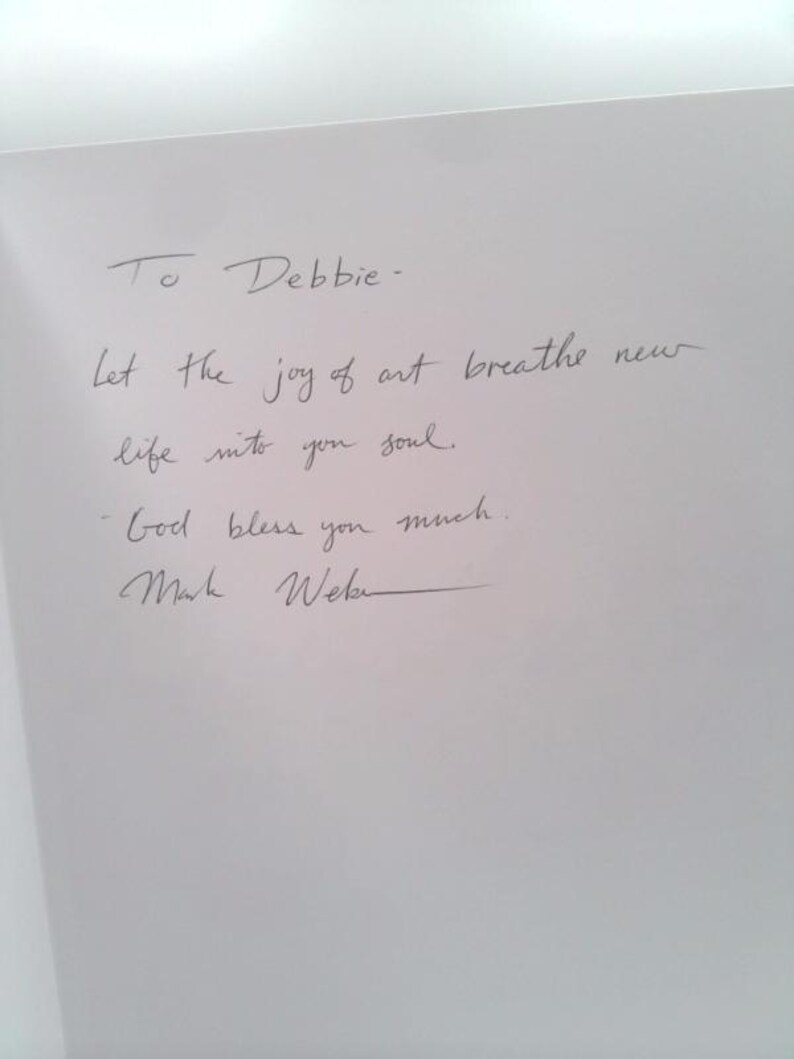 To Debbie -
Let the joy of art breathe new
life into you soul.
- God bless you much.
Mark Weber